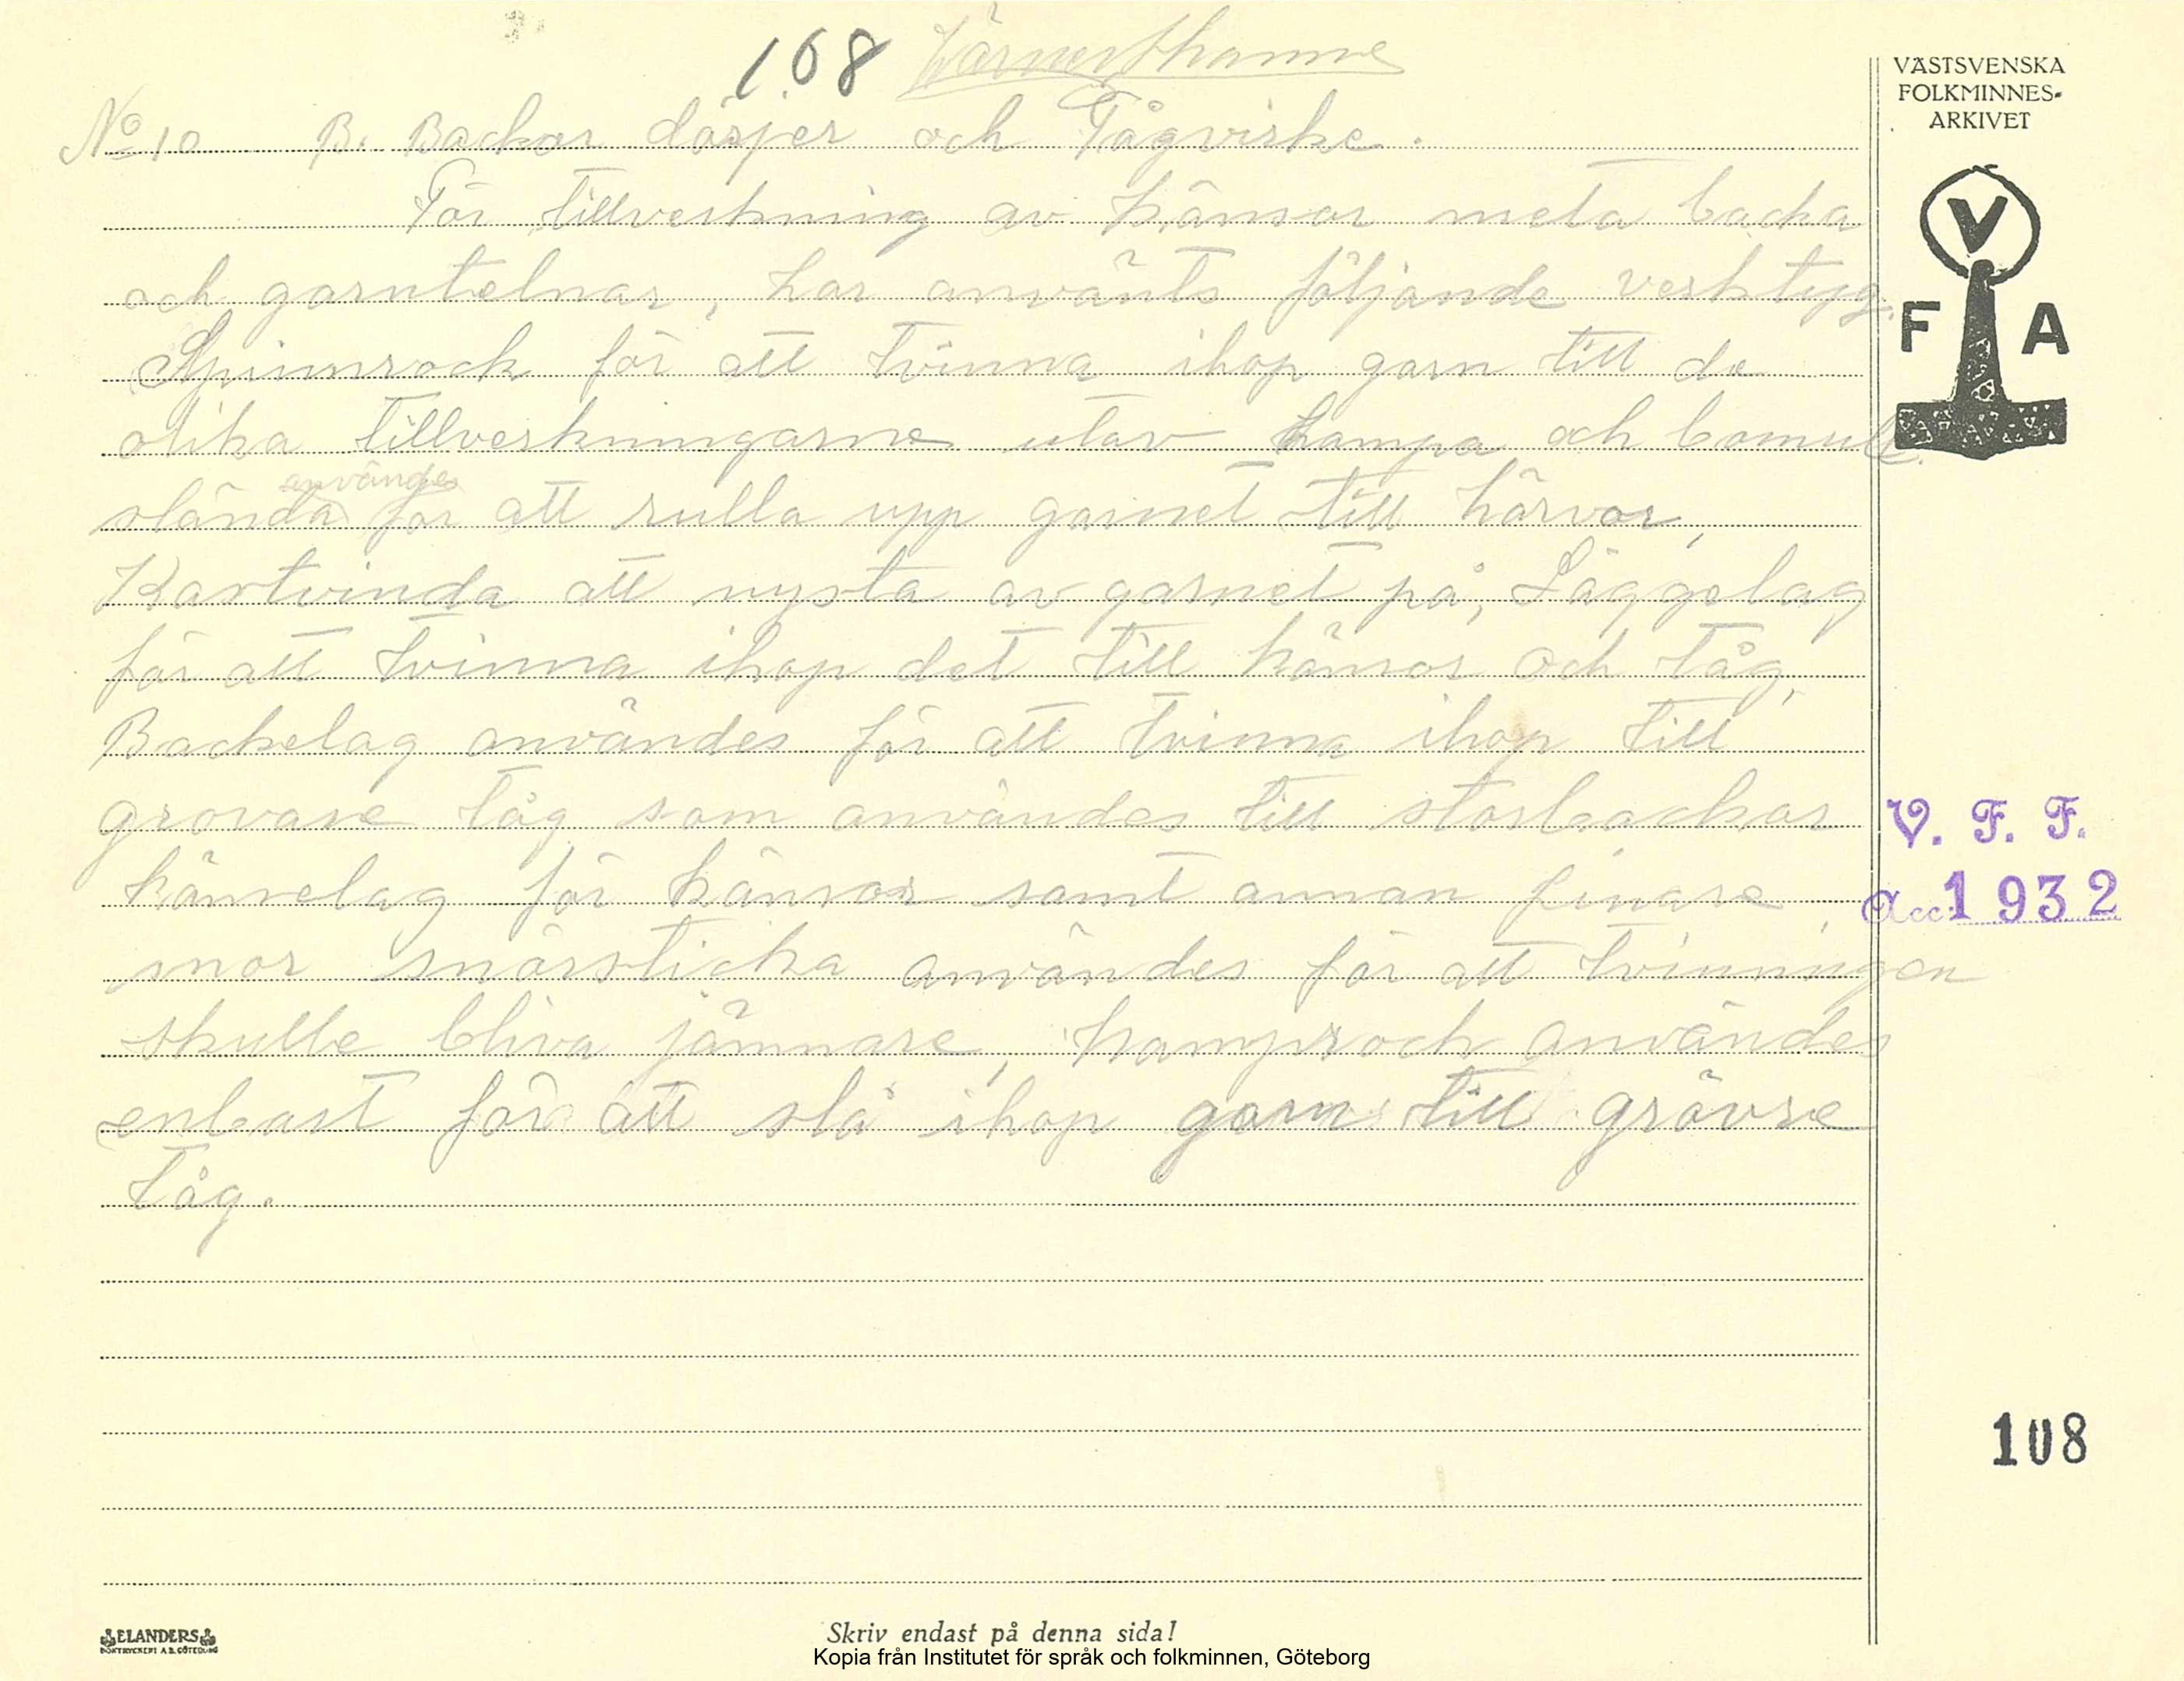 108
VÄSTSVENSKA
FOLKMINNES-
ARKIVET
No 10 B. Backor dörjer och Tågviske.
För tillverkning av känsar meta backa
och garntelnar, har använts följande verktyg.
Spinnrock för att tvinna ihop garn till de
olika tillverkningarne utav hampa och bomull.
användes
slända för att rulla upp garnet till härvor,
Kastvinda att nysta av garnet på, Läggelag
för att tvinna ihop det till känsor och tåg,
Backelag användes för att tvinna ihop till
grovare tåg som användes till storbackor
känselag för känsor samt annan finare
snor snörsticka användes för att tvinningen
skulle bliva jämnare, hamprock användes
enbast för att slå ihop garn till grövre
tåg.
V
F A
V. F. F.
Acc. 1932
108
ELANDERS
BOKTRYCKERI A.B. GÖTEBORG
Skriv endast på denna sida!
Kopia från Institutet för språk och folkminnen, Göteborg